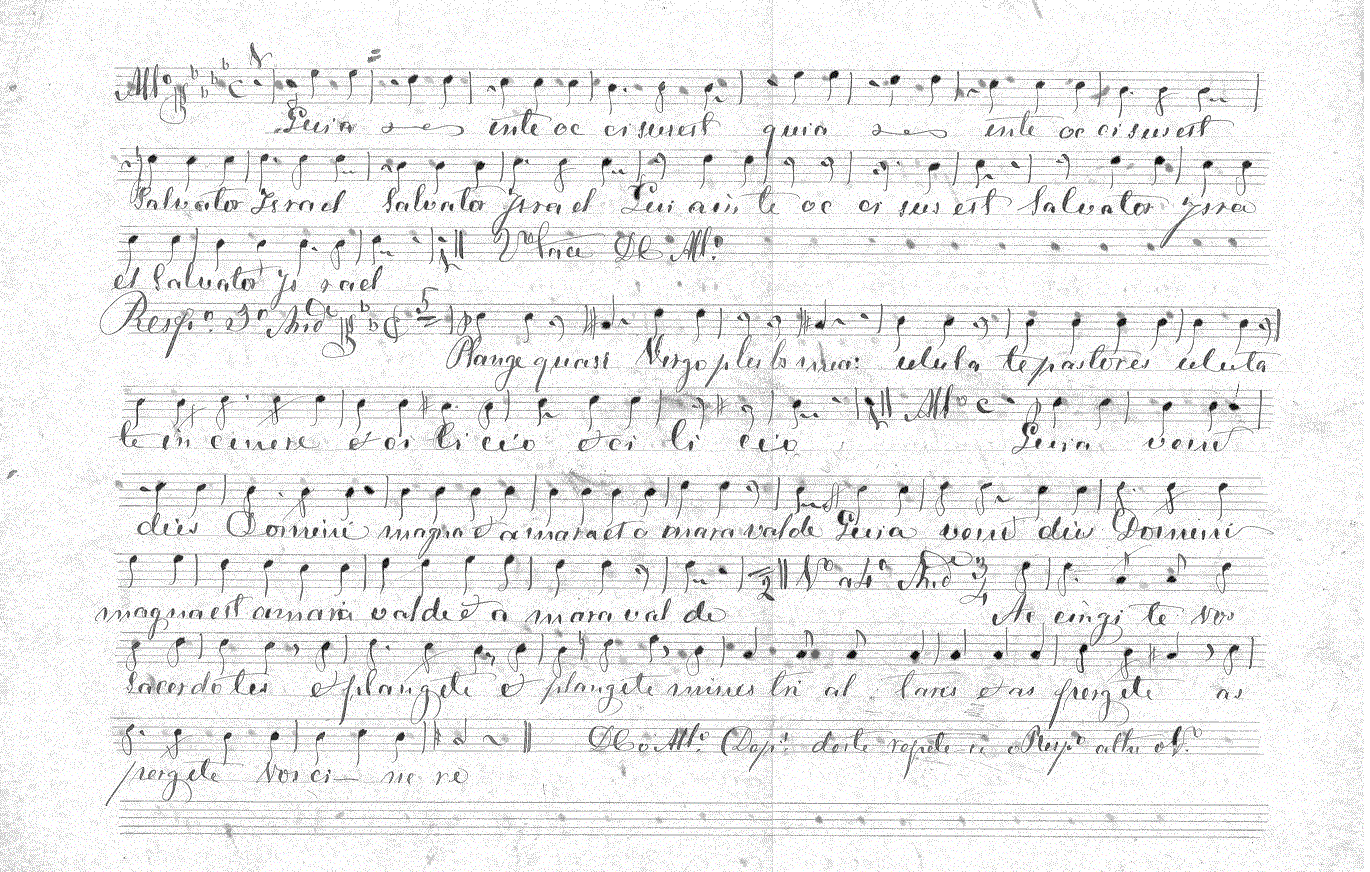 All.º
Quia inte oc cisusest quia inte oc cisusest
Salvator Israel Salvator Ysrael Qui ain te oc ci sus est Salvator Ysra
el Salvator Ys rael
D C All.º
Resp.º 3.º And.e
Plange quasi Virgo plebs mea: ululate pastores ulula
te in cinere et ci li cio et ci li cio
All.º C
Quia venit
dies Domini magna et amaraet a maravalde Quia venit dies Domini
magnaest amara valde et a maraval de
V.º a 4.º And.e 3/4
Ac cingi te vos
Sacerdotes et plangete et plangete minis tri al tares et as pergete as
pergete vos ci ne re
D C o All.º (Dep.s deste repete o Resp.º